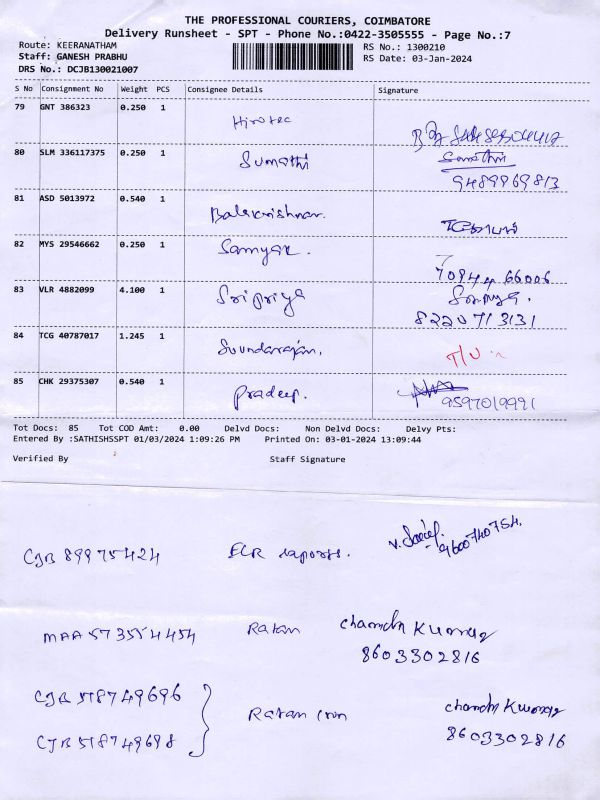 THE PROFESSIONAL COURIERS, COIMBATORE
Delivery Runsheet - SPT - Phone No.:0422-3505555 - Page No.:7
Route: KEERANATHAM RS No.: 1300210
Staff: GANESH PRABHU RS Date: 03-Jan-2024
DRS No.: DCJB130021007
S No Consignment No Weight PCS Consignee Details Signature
79 GNT 386323 0.250 1 Hirotec
80 SLM 336117375 0.250 1 Sumathi
9489969813
81 ASD 5013972 0.540 1 Balakrishnan.
82 MYS 29546662 0.250 1 Samyak.
70944 66006
83 VLR 4882099 4.100 1 Sripriya Sowmya.
8220713131
84 TCG 40787017 1.245 1 Soundarajan. T/U
85 CHK 29375307 0.540 1 Pradeep. 9597019991
Tot Docs: 85 Tot COD Amt: 0.00 Delvd Docs: Non Delvd Docs: Delvy Pts:
Entered By :SATHISHSSPT 01/03/2024 1:09:26 PM Printed On: 03-01-2024 13:09:44
Verified By Staff Signature
CJB 89975424 9600740754.
MAA 573554454 Ratan Chandn Kumar
8603302816
CJB 518749696
Ratan Chandn Kumar
CJB 518749698 8603302816